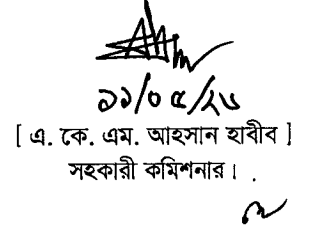 ১১/০৫/২৬
[ এ. কে. এম. আহসান হাবীব ]
সহকারী কমিশনার।